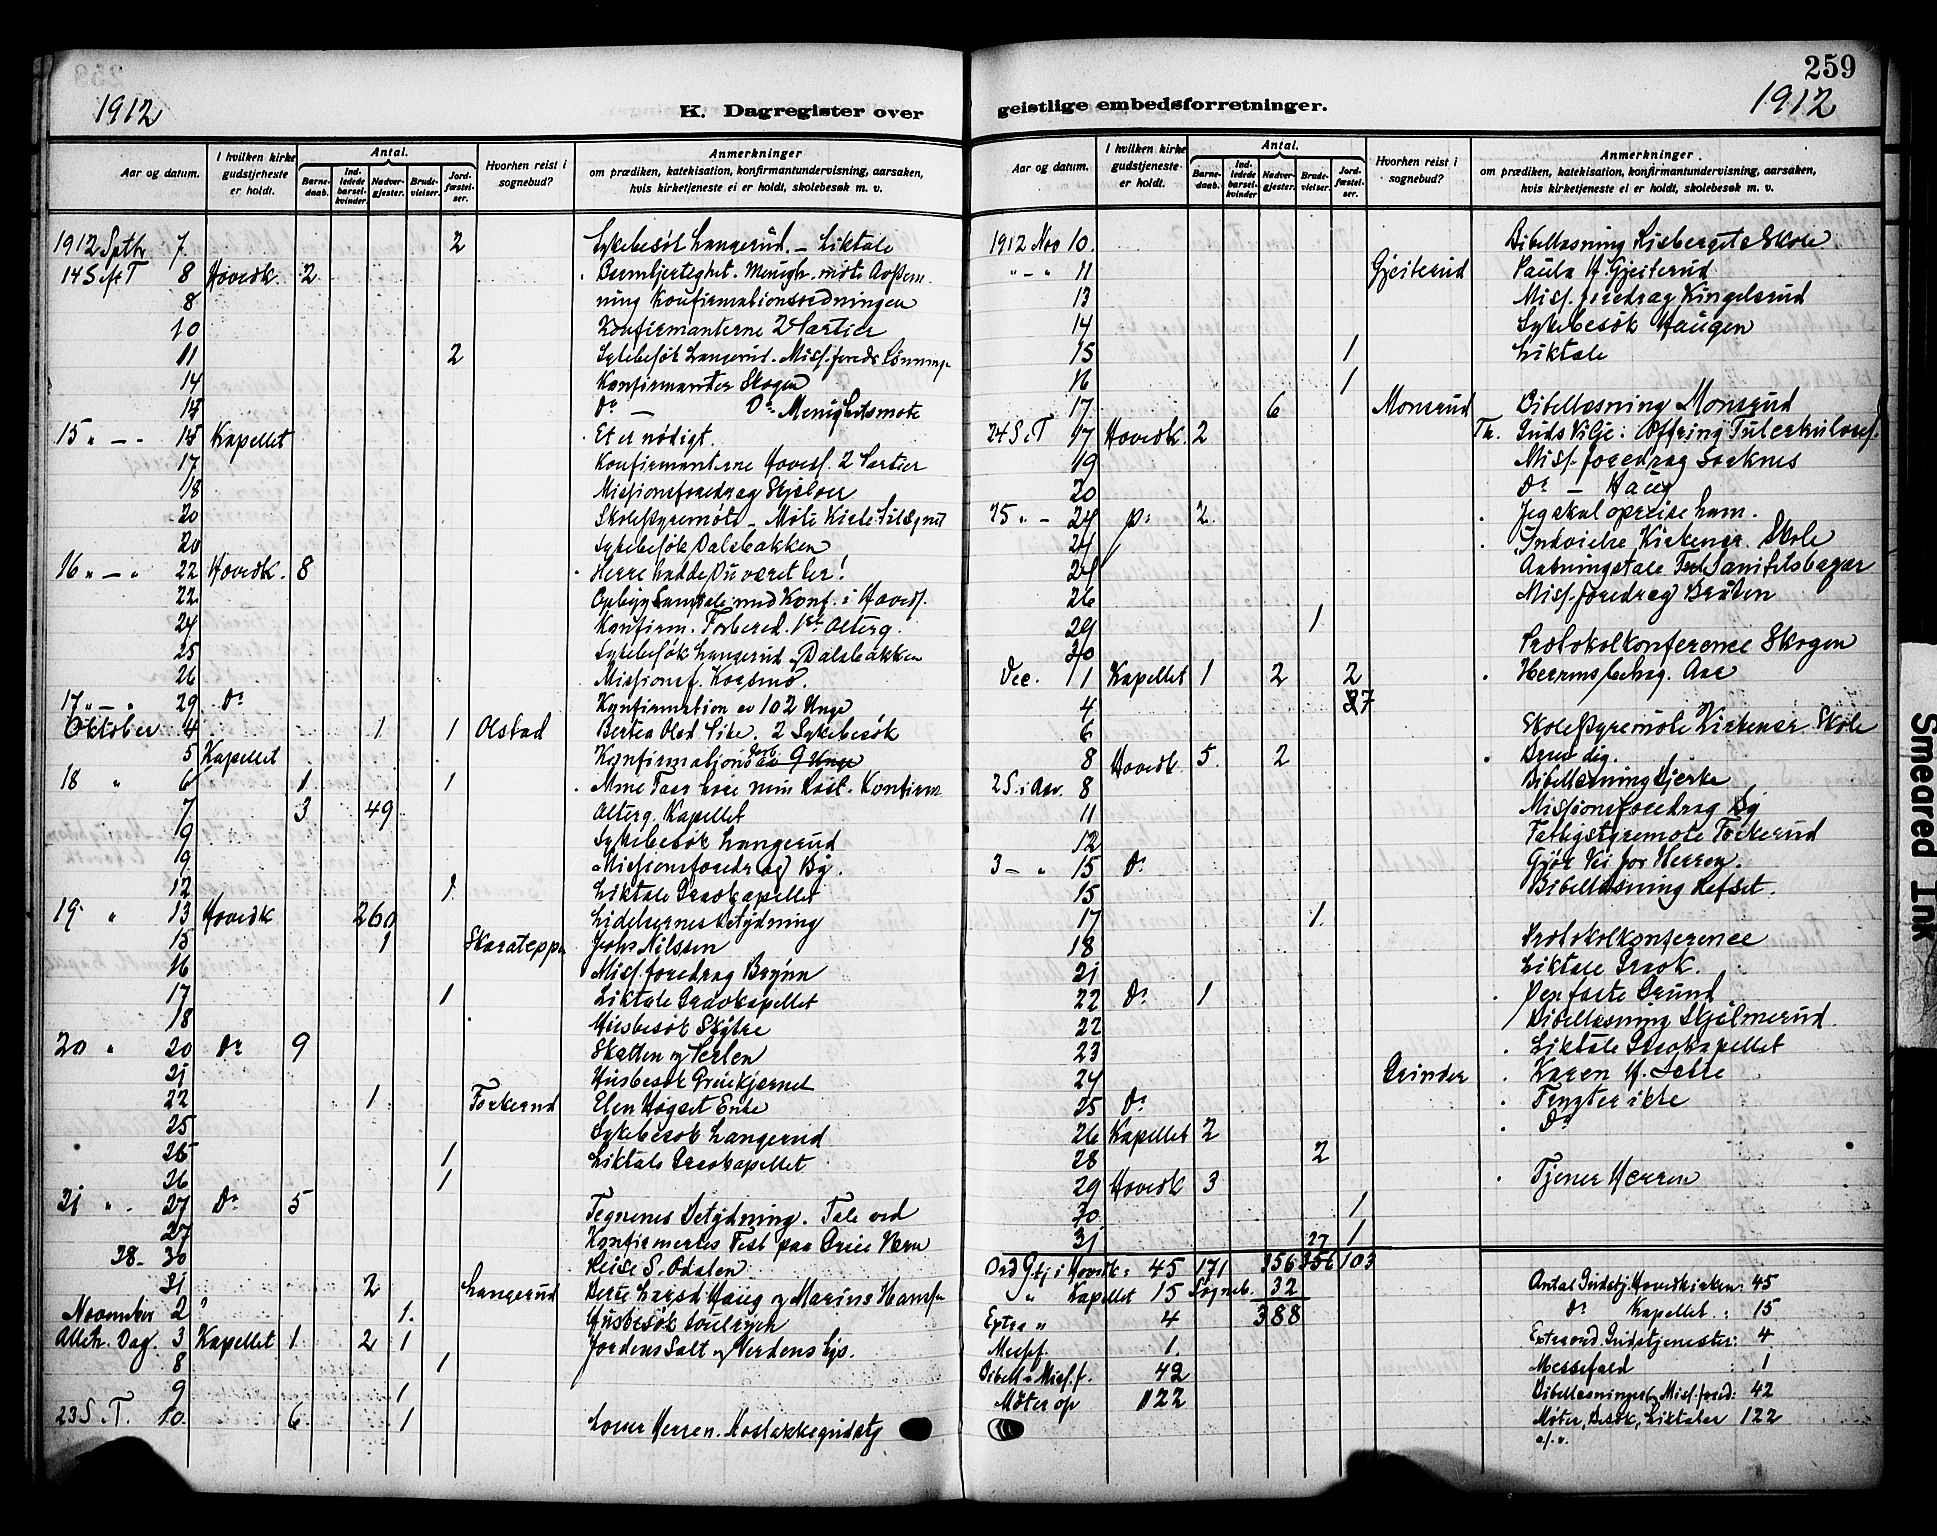 259
1912
K. Dagregister over
geistlige embedsforretninger.
1912
Aar og datum.
I hvilken kirke gudstjeneste er holdt.
Antal.
Barnedaab.
Indledede barselkvinder.
Nadvergjester.
Brudevielser.
Jordfæstelser.
Hvorhen reist i sognebud?
Anmerkninger
om prædiken, katekisation, konfirmantundervisning, aarsaken,
hvis kirketjeneste ei er holdt, skolebesøk m. v.
1912 Septbr 7 2 Sykebesök Langerud. - Liktale
14 S e T 8 Hovedk. 2 Barmhjertighet. Menigh. möte
8 ning Konfirmationsordningen
10 Konfirmanterne 2 Partier
11 2 Sykebesök Langerud. Miss.foredr.
14 Konfirmanter Skogen
14 Do — Do Menighetsmöte
15 " — " 15 Kapellet Et er nödigt.
17 Konfirmanterne Hoveds. 2 Partier
18 Missionsforedrag
20 Skolestyremöte - Möte
20 Sykebesök Dalsbakken
16 " — " 22 Hovedk. 8 Herre hadde Du været her!
22 med Konf. i Hoveds.
24 Konfirm. Forbered. 1ste Alterg.
25 Sykebesök Langerud Dalsbakken
26 Missionsf. Korsmo.
17 " — " 29 Do Konfirmation av 102 Unge
Oktober 4 1 1 Olstad Bertea Olsd 2 Sykebesök
5 Kapellet Konfirmation
18 " 6 1 1 min Röst. Konfirm
7 3 49 Alterg. Kapellet
9 Sykebesök Langerud
9 Missionsforedrag By.
12 1 Liktale Gravkapellet
19 " 13 Hovedk 260 Lidelsernes Betydning
15 1 Johs Nilssen
16 Miss.foredrag Brynn
17 1 Liktale Gravkapellet
18 Husbesök
20 " 20 Do 9 Skatten og Perlen
21 Husbesök
22 1 Forkerud Elen Högset Enke
25 Sykebesök Langerud
25 1 Liktale Gravkapellet
26 1
21 " 27 Do 5 Tegnenes Betydning. Tale ved
27 Konfirmertes Fest paa
28 - 30 Reise S. Odalen
31 2 Langerud Larsd Haug og Marius
November 2 1 Husbesök
Alleh. Dag. 3 Kapellet 1 2 1 Jordens Salt og Verdens Lys.
8 1
9 1
23 S. T. 10 6 1 Lover Herren. Höstakkegudstj
Aar og datum.
I hvilken kirke gudstjeneste er holdt.
Antal.
Barnedaab.
Indledede barselkvinder.
Nadvergjester.
Brudevielser.
Jordfæstelser.
Hvorhen reist i sognebud?
Anmerkninger.
om prædiken, katekisation, konfirmantundervisning, aarsaken,
hvis kirketjeneste ei er holdt, skolebesøk m. v.
1912 Nov 10. Bibellæsning Skole
" — " 11 Gjeiterud Paula H. Gjeiterud
13 Miss.foredrag Kingelsrud
14 Sykebesök Haugen
15 1 Liktale
16 1
17 6 Monsrud Bibellæsning Monsrud
24 S e T 17 Hovedk. 2 Guds Vilje: Offring Tuberkulosef.
19 Miss. foredrag Sorknes
20 Do — Haug
25 " - 24 Do 2 Jeg skal opreise ham.
24 Indvielse Kirkener Skole
24 Aabningstale Sanitetsbazar
26 Miss.foredrag Bråten
29 1
30 Protokolkonference Skogen
Dec. 1 Kapellet 1 2 2 Herrens behag. Aar
4
6 Skolestyremöte Kirkener Skole
8 Hovedk. 5 2 dig.
2 S. i Adv. 8 Bibellæsning Bjerke
11 Missionsforedrag By
12 Fattigstyremöte Forkerud
3 — " 15 Do Gjör Vei for Herren.
15 Bibellæsning Refset.
17 1
18 Protokolkonference
21 Liktale Gravk.
22 Do 1 Den faste Grund
22 Bibellæsning Skjelmerud
23 Liktale Gravkapellet
24 Grinder Karen H.
25 Do Frygter ikke
26 Kapellet 2 Do
28 2
29 Hovedk 3 Tjener Herren
30 1
31 27 1
Ord Gtj i Hovedk: 45 171 356 103
" Kapellet 15 Sogneb. 32
Extra " 4 388
Messf. 1
Bibell & Miss.f. 42
Möter op 122
Antal Gudstj Hovedkirken: 45
Do Kapellet: 15
Extraord. Gudstjenester: 4
Messefald : 1
Bibellæsninger & Miss. fored: 42
Möter, Besök, Liktaler 122
o.s.v.
Smeared Ink